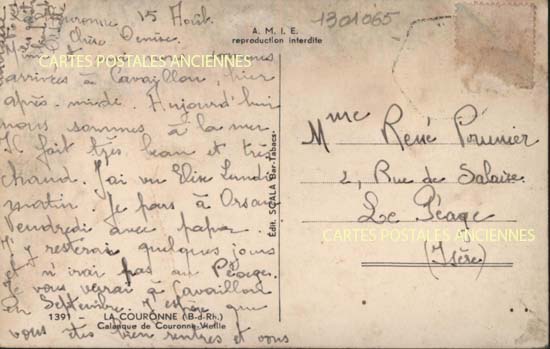 Couronne 15 Août
Chère Denise
nous sommes
arrivées à Cavaillon, hier
après-midi. Aujourd'hui
nous sommes à la mer
Il fait très beau et très
chaud. J'ai vu Elise Lundi
matin. Je pars à Orsan
Vendredi avec papa.
J'y resterai quelques jours
et n'irai pas au Péage.
Je vous verrai à Cavaillon
en Septembre. J'espère que
vous êtes bien rentrés et vous
1391 - LA COURONNE (B-d-Rh.)
Calanque de Couronne-Vieille
A. M. I. E.
reproduction interdite
Édit. SCALA Bar-Tabacs
1301065
Mme René Prunier
2, Rue de Salaise
Le Péage
(Isère)
CARTES POSTALES ANCIENNES
CARTES POSTALES ANCIENNES